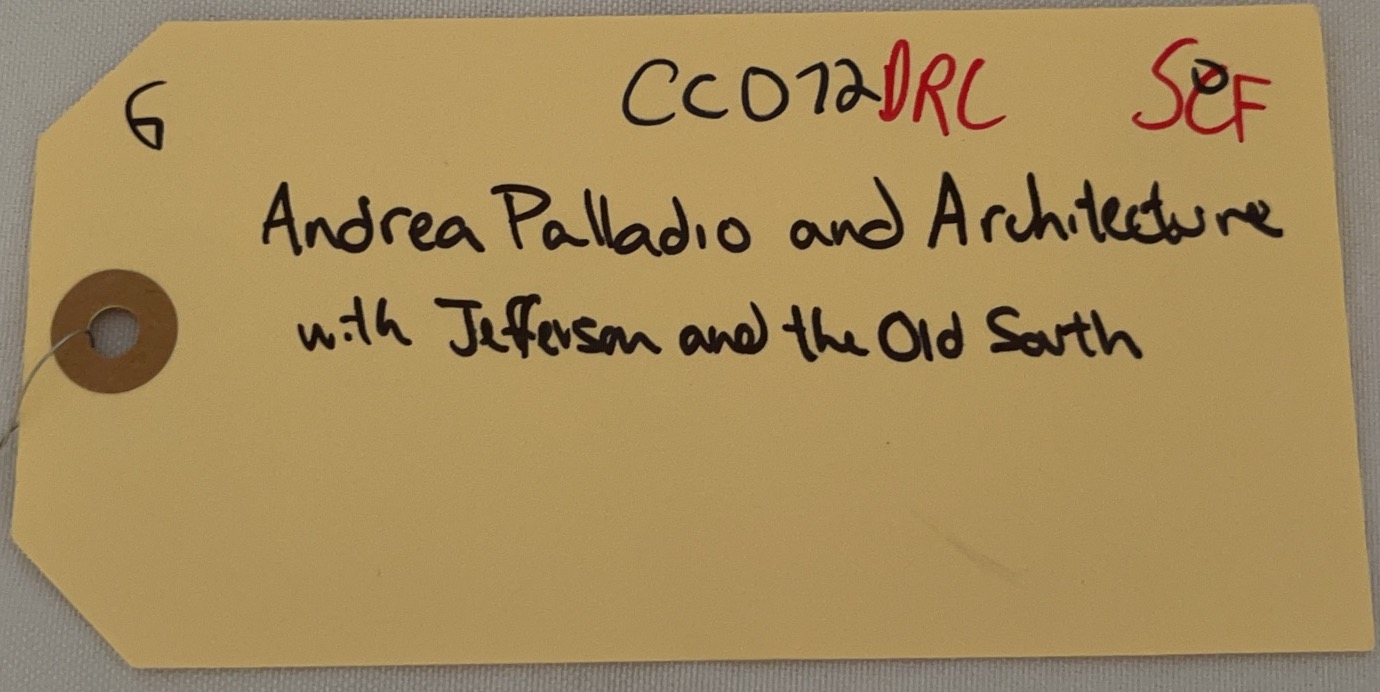 G CC072DRC SCF
Andrea Palladio and Architecture
with Jefferson and the Old South